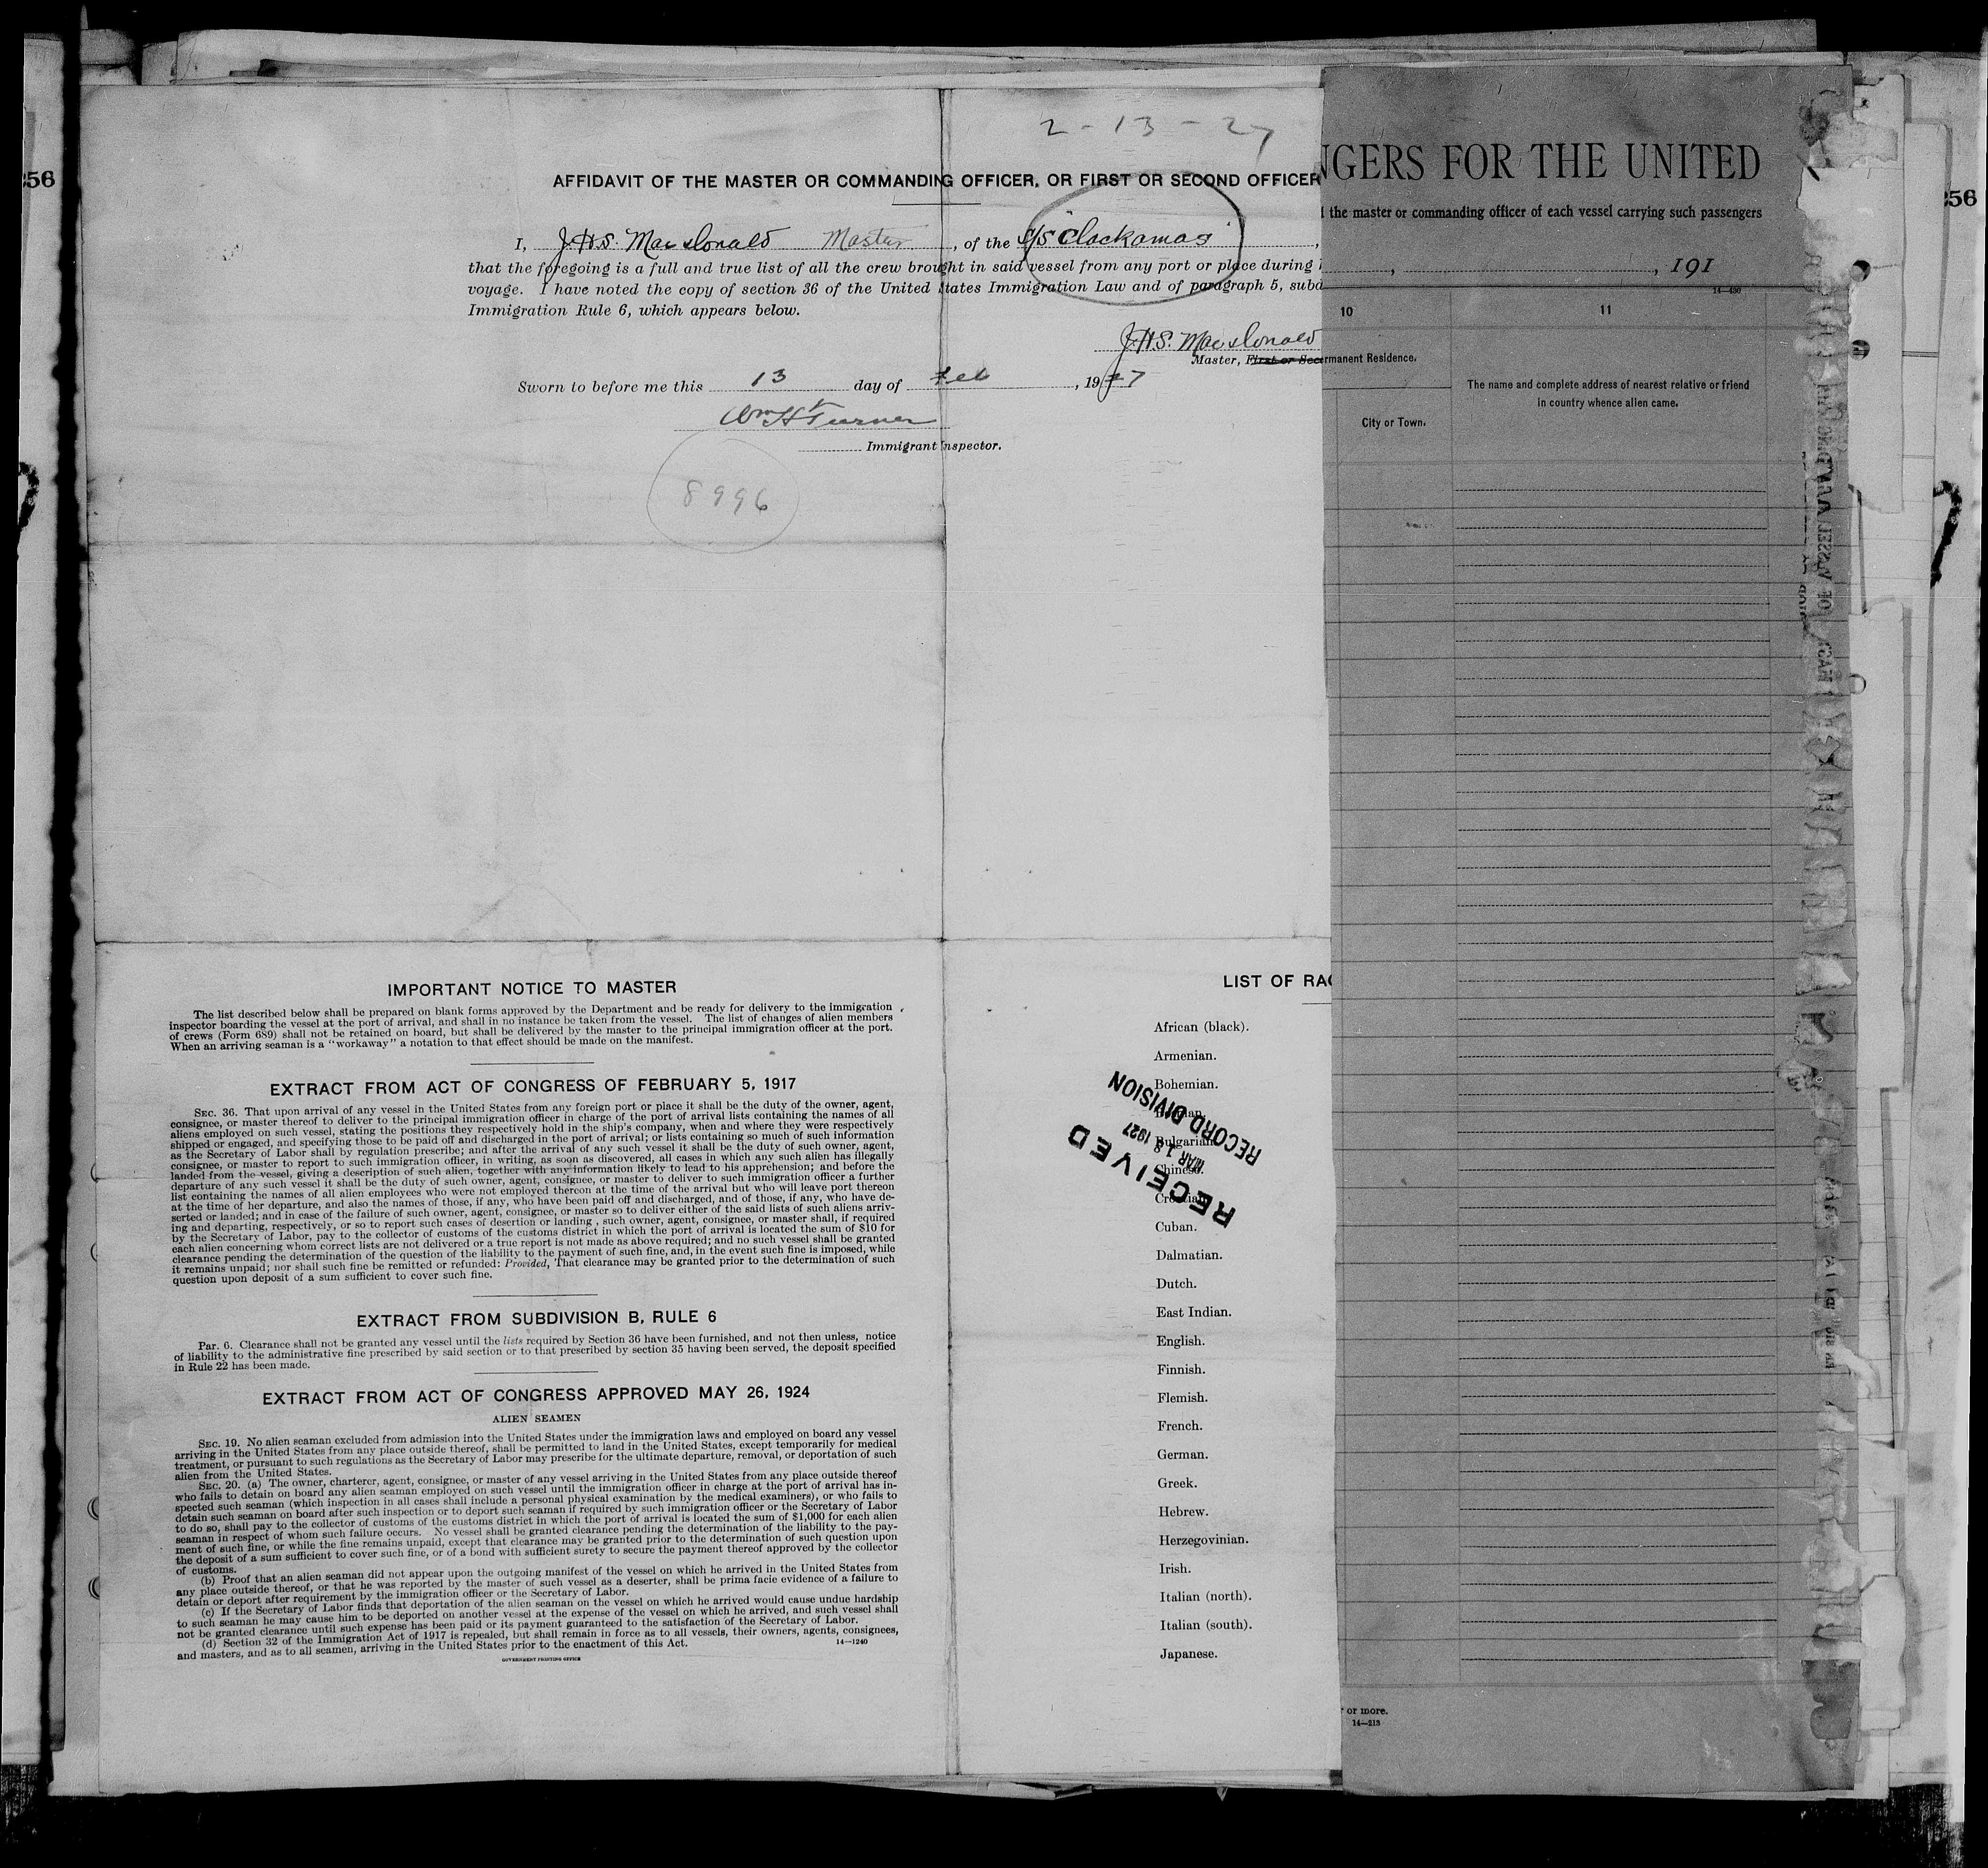 2-13-27
AFFIDAVIT OF THE MASTER OR COMMANDING OFFICER, OR FIRST OR SECOND OFFICER
I, J.H.S. MacDonald Master, of the S/S "Clackamas",
that the foregoing is a full and true list of all the crew brought in said vessel from any port or place during
voyage. I have noted the copy of section 36 of the United States Immigration Law and of paragraph 5, subd
Immigration Rule 6, which appears below.
J.H.S. MacDonald
Master, First or Sec
Sworn to before me this 13 day of Feb, 1927
Wm H Turner
Immigrant Inspector.
8996
IMPORTANT NOTICE TO MASTER
The list described below shall be prepared on blank forms approved by the Department and be ready for delivery to the immigration
inspector boarding the vessel at the port of arrival, and shall in no instance be taken from the vessel. The list of changes of alien members
of crews (Form 689) shall not be retained on board, but shall be delivered by the master to the principal immigration officer at the port.
When an arriving seaman is a "workaway" a notation to that effect should be made on the manifest.
EXTRACT FROM ACT OF CONGRESS OF FEBRUARY 5, 1917
SEC. 36. That upon arrival of any vessel in the United States from any foreign port or place it shall be the duty of the owner, agent,
consignee, or master thereof to deliver to the principal immigration officer in charge of the port of arrival lists containing the names of all
aliens employed on such vessel, stating the positions they respectively hold in the ship's company, when and where they were respectively
shipped or engaged, and specifying those to be paid off and discharged in the port of arrival; or lists containing so much of such information
as the Secretary of Labor shall by regulation prescribe; and after the arrival of any such vessel it shall be the duty of such owner, agent,
consignee, or master to report to such immigration officer, in writing, as soon as discovered, all cases in which any such alien has illegally
landed from the vessel, giving a description of such alien, together with any information likely to lead to his apprehension; and before the
departure of any such vessel it shall be the duty of such owner, agent, consignee, or master to deliver to such immigration officer a further
list containing the names of all alien employees who were not employed thereon at the time of the arrival but who will leave port thereon
at the time of her departure, and also the names of those, if any, who have been paid off and discharged, and of those, if any, who have de-
serted or landed; and in case of the failure of such owner, agent, consignee, or master so to deliver either of the said lists of such aliens arriv-
ing and departing, respectively, or so to report such cases of desertion or landing, such owner, agent, consignee, or master shall, if required
by the Secretary of Labor, pay to the collector of customs of the customs district in which the port of arrival is located the sum of $10 for
each alien concerning whom correct lists are not delivered or a true report is not made as above required; and no such vessel shall be granted
clearance pending the determination of the question of the liability to the payment of such fine, and, in the event such fine is imposed, while
it remains unpaid; nor shall such fine be remitted or refunded: Provided, That clearance may be granted prior to the determination of such
question upon deposit of a sum sufficient to cover such fine.
EXTRACT FROM SUBDIVISION B, RULE 6
Par. 6. Clearance shall not be granted any vessel until the lists required by Section 36 have been furnished, and not then unless, notice
of liability to the administrative fine prescribed by said section or to that prescribed by section 35 having been served, the deposit specified
in Rule 22 has been made.
EXTRACT FROM ACT OF CONGRESS APPROVED MAY 26, 1924
ALIEN SEAMEN
SEC. 19. No alien seaman excluded from admission into the United States under the immigration laws and employed on board any vessel
arriving in the United States from any place outside thereof, shall be permitted to land in the United States, except temporarily for medical
treatment, or pursuant to such regulations as the Secretary of Labor may prescribe for the ultimate departure, removal, or deportation of such
alien from the United States.
SEC. 20. (a) The owner, charterer, agent, consignee, or master of any vessel arriving in the United States from any place outside thereof
who fails to detain on board any alien seaman employed on such vessel until the immigration officer in charge at the port of arrival has in-
spected such seaman (which inspection in all cases shall include a personal physical examination by the medical examiners), or who fails to
detain such seaman on board after such inspection or to deport such seaman if required by such immigration officer or the Secretary of Labor
to do so, shall pay to the collector of customs of the customs district in which the port of arrival is located the sum of $1,000 for each alien
seaman in respect of whom such failure occurs. No vessel shall be granted clearance pending the determination of the liability to the pay-
ment of such fine, or while the fine remains unpaid, except that clearance may be granted prior to the determination of such question upon
the deposit of a sum sufficient to cover such fine, or of a bond with sufficient surety to secure the payment thereof approved by the collector
of customs.
(b) Proof that an alien seaman did not appear upon the outgoing manifest of the vessel on which he arrived in the United States from
any place outside thereof, or that he was reported by the master of such vessel as a deserter, shall be prima facie evidence of a failure to
detain or deport after requirement by the immigration officer or the Secretary of Labor.
(c) If the Secretary of Labor finds that deportation of the alien seaman on the vessel on which he arrived would cause undue hardship
to such seaman he may cause him to be deported on another vessel at the expense of the vessel on which he arrived, and such vessel shall
not be granted clearance until such expense has been paid or its payment guaranteed to the satisfaction of the Secretary of Labor.
(d) Section 32 of the Immigration Act of 1917 is repealed, but shall remain in force as to all vessels, their owners, agents, consignees,
and masters, and as to all seamen, arriving in the United States prior to the enactment of this Act.
14—1240
GOVERNMENT PRINTING OFFICE
LIST OF RAC
African (black).
Armenian.
Bohemian.
Bulgarian
Chinese.
Croatian
Cuban.
Dalmatian.
Dutch.
East Indian.
English.
Finnish.
Flemish.
French.
German.
Greek.
Hebrew.
Herzegovinian.
Irish.
Italian (north).
Italian (south).
Japanese.
RECEIVED
MAR 1 1927
RECORD DIVISION
NGERS FOR THE UNITED
the master or commanding officer of each vessel carrying such passengers
, , 191
14—430
10
11
rmanent Residence.
The name and complete address of nearest relative or friend
in country whence alien came.
City or Town.
or more.
14—213
56
256